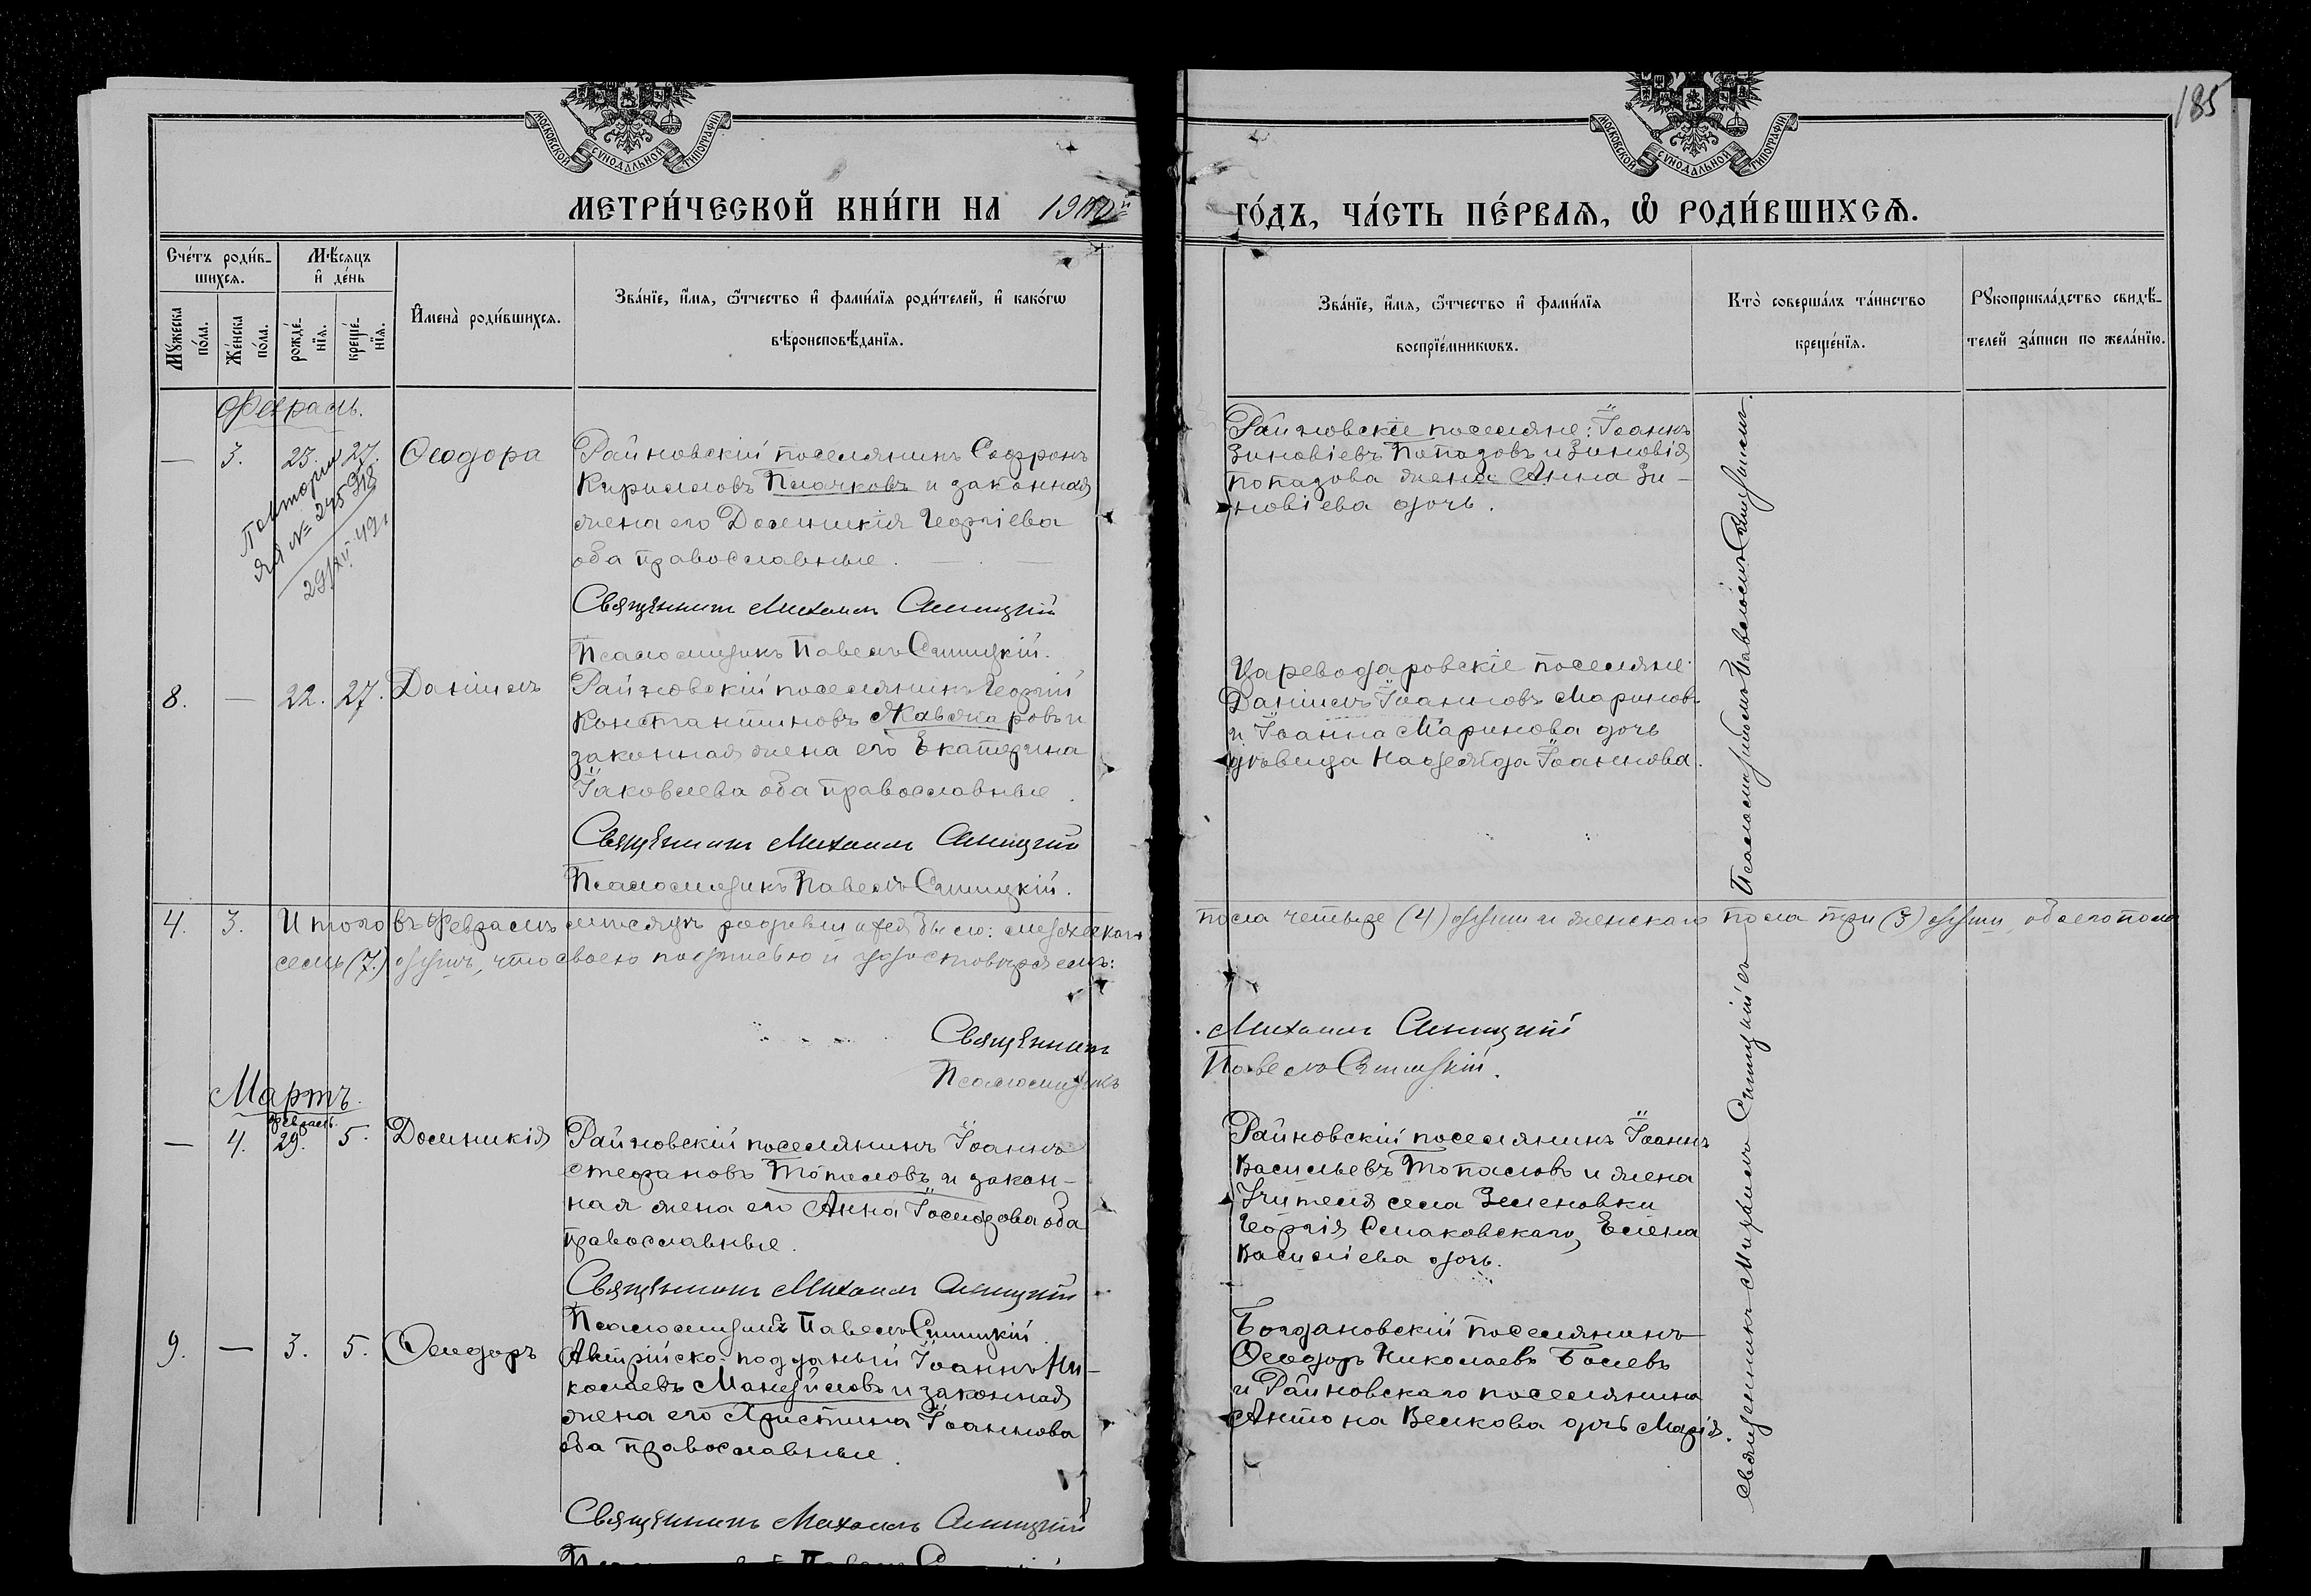 185
МОСКОВСКОЙ СУНОДАЛЬНОЙ ТИПОГРАФІИ
МОСКОВСКОЙ СУНОДАЛЬНОЙ ТИПОГРАФІИ
МЕТРИ́ЧЕСКОЙ КНИ́ГИ НА 1912й
ГО́ДЪ, ЧА́СТЬ ПЕ́РВАЯ, Ѽ РОДИ́ВШИХСЯ.
Сче́тъ роди́в-
шихся.
Мѣ́сяцъ
и҆ де́нь
Мꙋ́жеска
по́ла.
Же́нска
по́ла.
рожде́-
нїя.
креще́-
нїя.
И҆мена̀ роди́вшихся.
Зва́нїе, и҆́мя, ѻ҆́тчество и҆ фами́лїя роди́телей, и҆ како́гѡ
вѣроисповѣ́данїя.
Зва́нїе, и҆́мя, ѻ҆́тчество и҆ фами́лїя
воспрїе́мникѡвъ.
Кто̀ соверша́лъ та́инство
креще́нїя.
Рꙋкоприкла́дство свидѣ́-
телей за́писи по жела́нїю.
Февраль.
— 3. 23. 27. Ѳеодора
29/XII 49г
Райновскій поселянинъ Софронъ
Кирилловъ Плачковъ и законная
жена его Доминикія Георгіева
оба православные.
Священникъ Михаилъ Синицкій
Псаломщикъ Павелъ Синицкій.
Райновскіе поселяне: Іоаннъ
Зиновіевъ Попазовъ и Зиновія
Попазова жена Анна Зи-
новіева дочь.
8. — 22. 27. Даніилъ
Райновскій поселянинъ Георгій
Константиновъ и
законная жена его Екатерина
Іаковлева оба православные
Священникъ Михаилъ Синицкій
Псаломщикъ Павелъ Синицкій.
Цареводаровскіе поселяне:
Даніилъ Іоанновъ Мариновъ
и Іоанна Маринова дочь
дѣвица Надежда Іоаннова.
4. 3. Итого въ Февралѣ мѣсяцѣ родившихся было: мужескаго
пола четыре (4) души и женскаго пола три (3) души, обоего пола
семь (7) душъ, что своею подписью и удостовѣряемъ:
Священникъ Михаилъ Синицкій
Псаломщикъ Павелъ Синицкій.
Мартъ.
февраль.
— 4. 29. 5. Доминикія
Райновскій поселянинъ Іоаннъ
Стефановъ Топаловъ и закон-
ная жена его Анна Іосифова оба
православные.
Священникъ Михаилъ Синицкій
Псаломщикъ Павелъ Синицкій.
Райновскій поселянинъ Іоаннъ
Васильевъ Топаловъ и жена
Учителя села Зеленовки
Георгія Смаковскаго, Елена
Василіева дочь.
9. — 3. 5. Ѳеодоръ
Австрійско-подданый Іоаннъ Ни-
колаевъ и законная
жена его Христина Іоаннова
оба православные.
Священникъ Михаилъ Синицкій
Богдановскій поселянинъ
Ѳеодоръ Николаевъ Балевъ
и Райновскаго поселянина
Антона Велкова дочь Марія.
Священникъ Михаилъ Синицкій съ Псаломщикомъ Павломъ Синицкимъ.